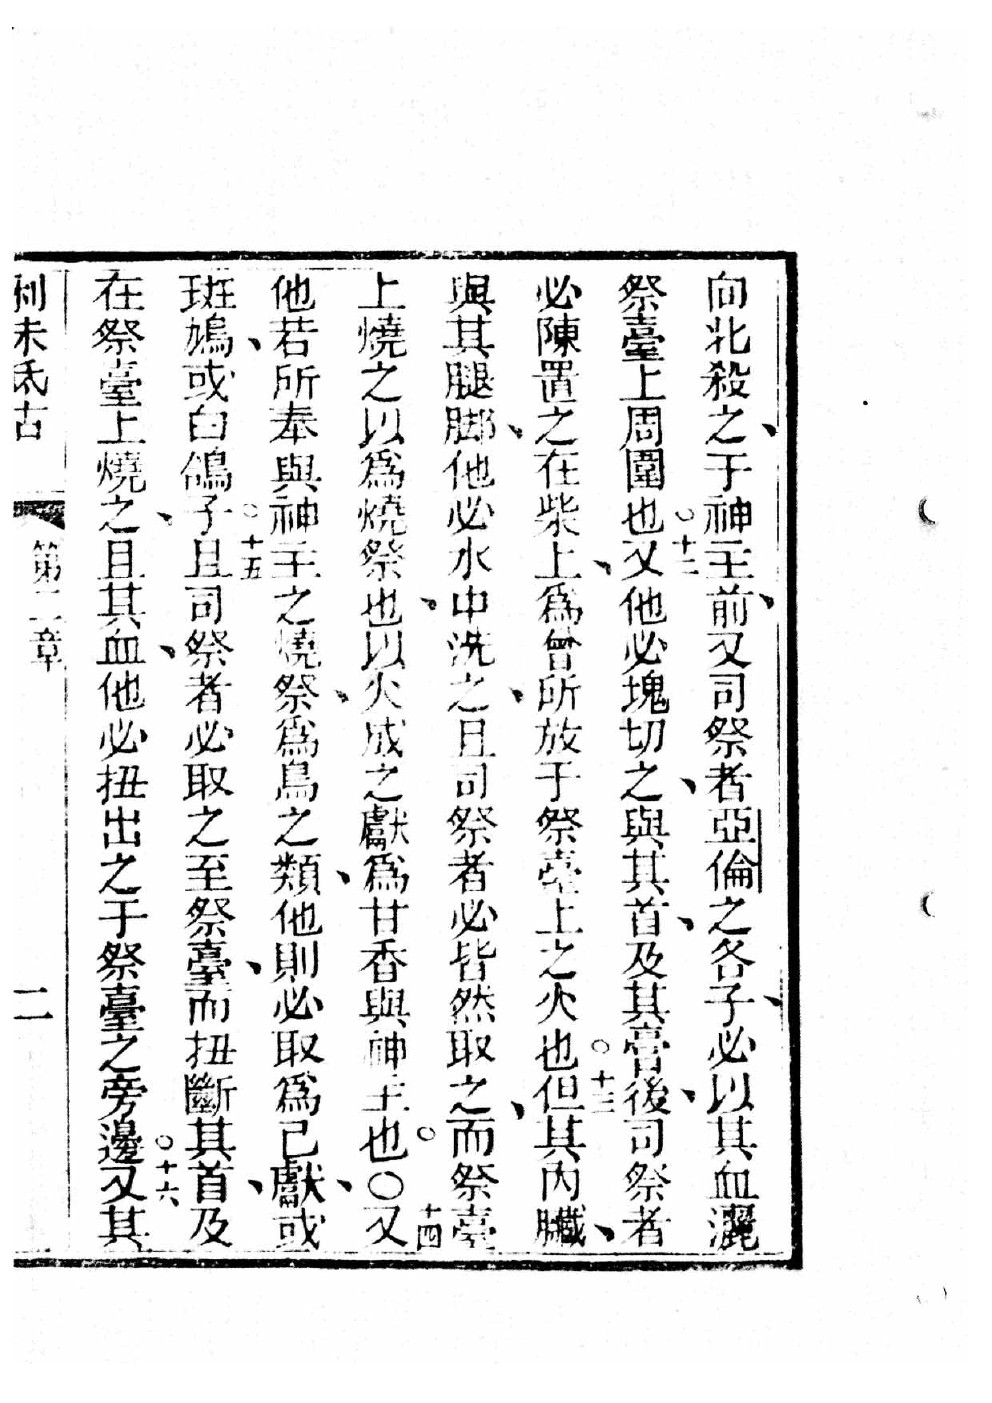 向北殺之、于神主前、又司祭者亞倫之各子、必以其血灑
祭臺上周圍也。十二又他必塊切之、與其首、及其膏、後司祭者
必陳置之在柴上、爲曾所放于祭臺上之火也。十三但其內臟、
與其腿脚、他必水中洗之、且司祭者必皆然取之、而祭臺
上燒之以爲燒祭也、以火成之獻爲甘香與神主也。〇十四又
他若所奉與神主之燒祭、爲鳥之類、他則必取爲己獻、或
斑鳩、或白鴿子。十五且司祭者必取之至祭臺、而扭斷其首、及
在祭臺上燒之、且其血、他必扭出之于祭臺之旁邊。十六又其
利未氏古
第二章
二